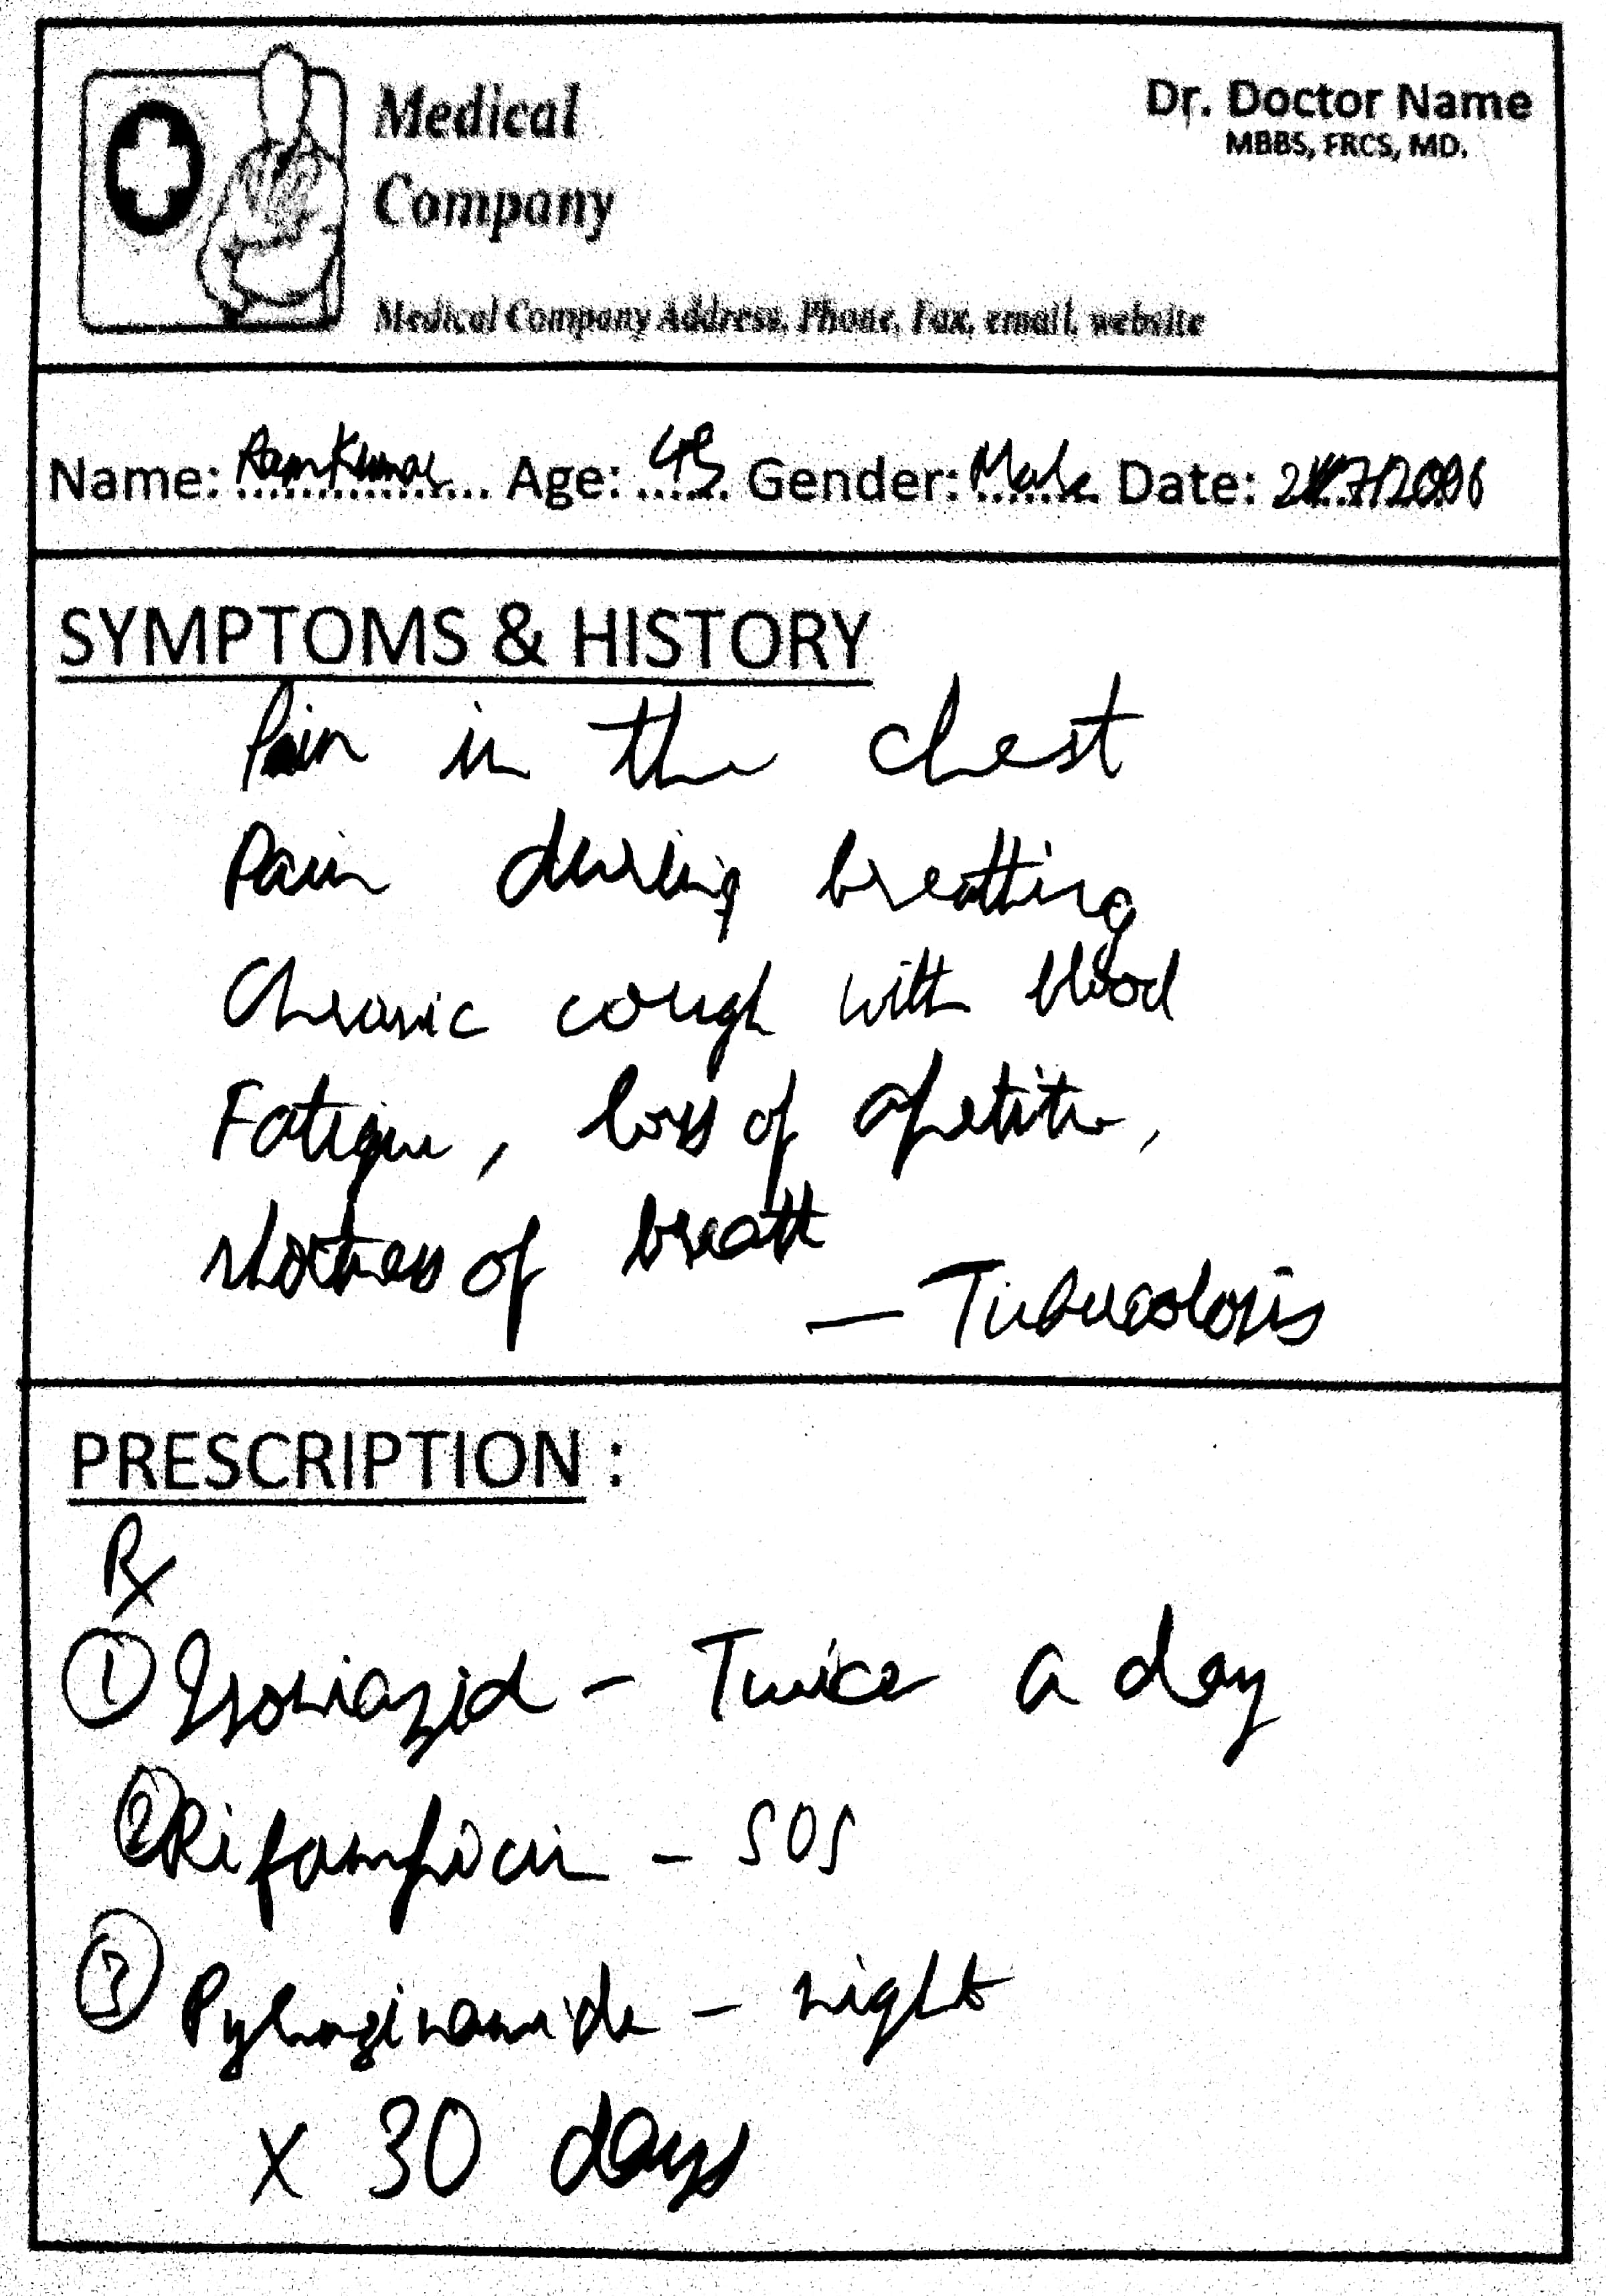 Medical
Company
Dr. Doctor Name
MBBS, FRCS, MD.
Medical Company Address, Phone, Fax, email, website
Name: Ram Kumar Age: 45 Gender: Male Date:
SYMPTOMS & HISTORY
Pain in the chest
Pain during breatting
Chronic cough with blood
Fatigue, loss of apetite,
shortness of breath
— Tuberculosis
PRESCRIPTION :
Rx
1 Isoniazid - Twice a day
2 Rifampicin - SOS
3 Pyrazinamide - night
x 30 days